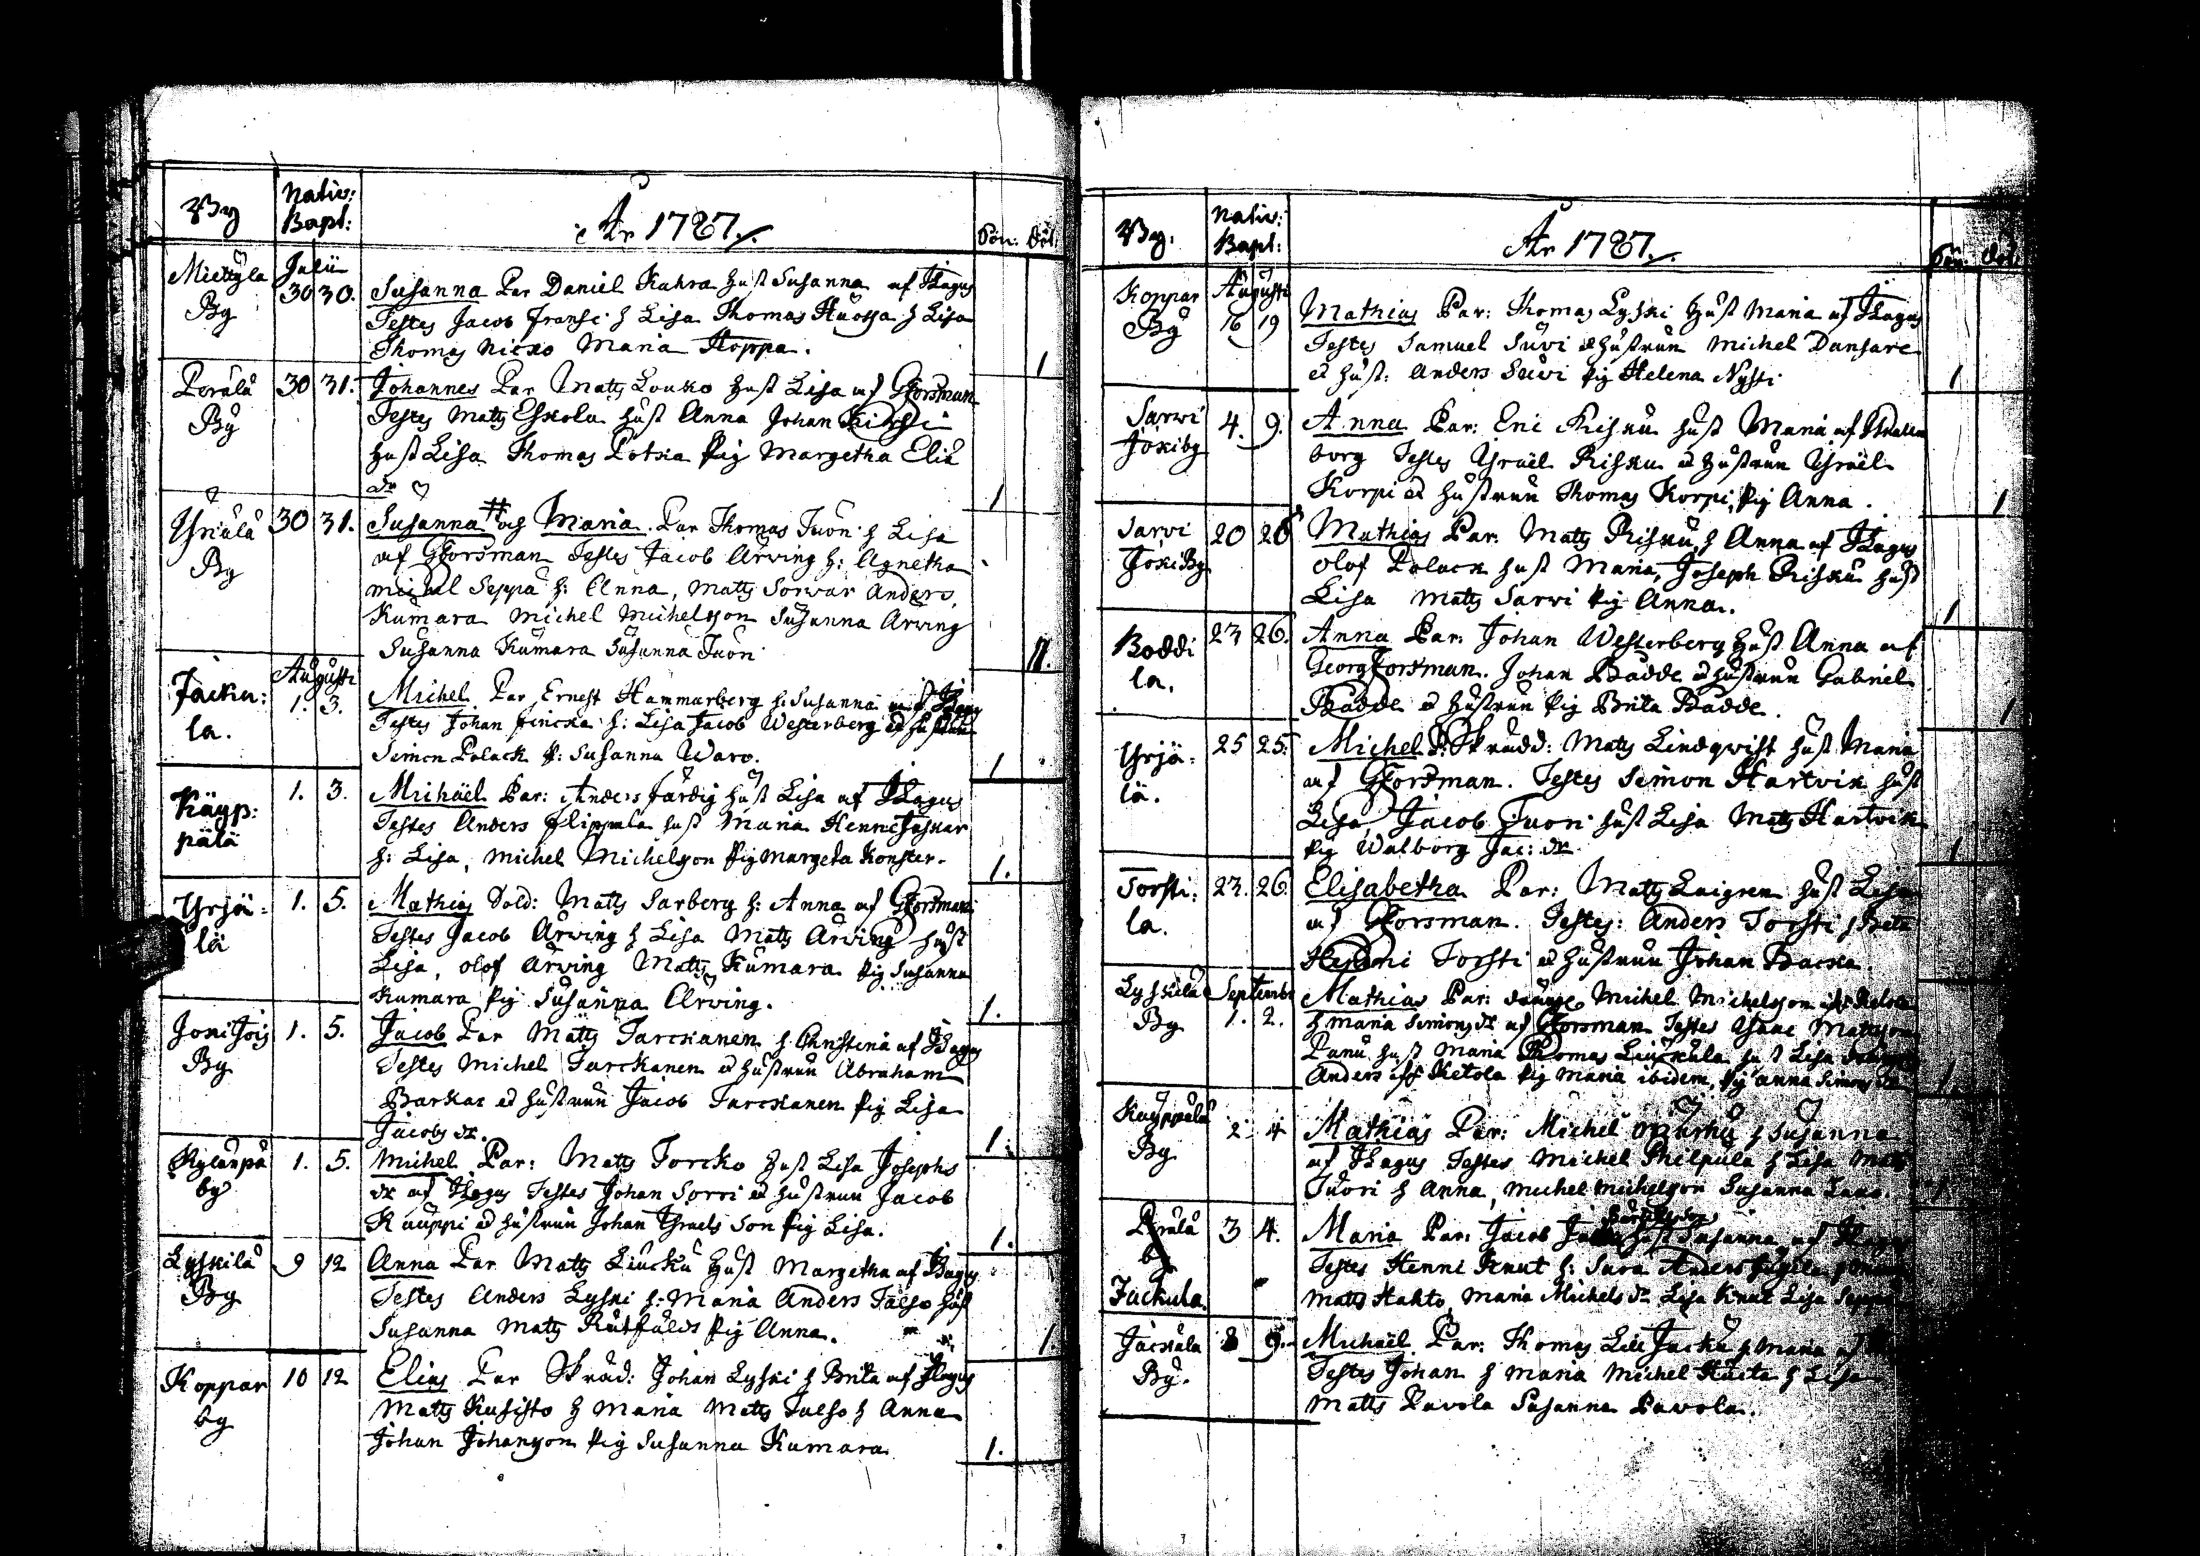 By
Nativ:
Bapt:
År 1787.
Sön: Dot:
Mickyla
By
Julii
30 30.
Susanna Par Daniel Kahra Hust Susanna af JLagus
Testes Jacob Fransi h Lisa Thomas h Lisa
Thomas Nicko Maria Hoppa.
1
Porälä
By
30 31.
Johannes Par Matts Louko Hust Lisa af GForsman
Testes Matts Eskola Hust Anna Johan
Hust Lisa Thomas Potka Pig Margetha Elis
dr
1
Yriälä
By
30 31.
Susanna och Maria. Par Thomas Tuori h Lisa
af GForsman Testes Jacob Arving h: Agnetha
Michal Seppä h: Anna, Matts Sorvar Anders
Kumara Michel Michelsson Susanna Arving
Susanna Kumara Susanna Tuori
II.
Jäcku:
la.
Augusti
1. 3.
Michel Par Ernest Hammarberg h: Susanna af JLagus
Testes Johan Fincka h: Lisa Jacob Westerberg ed hustrun
Simon Polack P: Susanna Waro.
1
Käyp:
pälä
1. 3.
Michäel Par: Anders Färdig Hust Lisa af JLagus
Testes Anders Flippula hust Maria Henric Jaskar
h: Lisa, Michel Michelsson Pig Margeta Konster.
1.
Yrjä:
lä
1. 5.
Mathias Sold: Matts Sarberg h: Anna af GForsman
Testes Jacob Arving h Lisa Matts Arving hust
Lisa, Olof Arving Matts Kumara Pig Susanna
Kumara Pig Susanna Arving.
1.
Joki
By
1. 5.
Jacob Par Matts Tarckanen h Christina af JLagus
Testes Michel Tarckanen ed hustrun Abraham
Barkar ed hustrun Jacob Tarckanen Pig Lisa
Jacobs dr.
1.
Kylänpä
by
1. 5.
Michel Par: Matts Torcko Hust Lisa Josephs
dr af JLagus Testes Johan Sorri ed hustrun Jacob
Kauppi ed hustrun Johan Israels Son Pig Lisa.
1.
Lyskilä
By
9 12
Anna Par Matts Liucku Hust Margetha af JLagus
Testes Anders Lyski h: Maria Anders Talso Hust
Susanna Matts Pig Anna.
1.
Koppar
by
10 12
Elias Par Skräd: Johan Lyski h Brita af JLagus
Matts Kusisto h Maria Matts Talso h Anna
Johan Johansson Pig Susanna Kumara
1.
By.
Nativ:
Bapt:
År 1787.
Sön: Dot:
Koppar
By
Augusti
16 19
Mathias Par: Thomas Lyski Hust Maria af JLagus
Testes Samuel Suvi ed hustrun Michel Dansare
ed hust: Anders Suvi Pig Helena Nysti
1
Sarwi
Jokiby
4. 9.
Anna Par: Eric Risku hust Maria af
borg Testes Israël Risku ed hustrun Israël
Korpi ed hustrun Thomas Korpi, Pig Anna.
1
Sarvi
Joki By
20 26
Mathias Par: Matts Risku h Anna af JLagus
Olof Polack hust Maria, Joseph Risku hust
Lisa Matts Sarvi Pig Anna.
1
Boddi
la.
23 26.
Anna Par: Johan Westerberg Hust Anna af
Georg Forsman. Johan Badde ed hustrun Gabriel
Badde ed hustrun Pig Brita Badde.
1
Yrjä:
lä.
25 25.
Michel P: Skrädd: Matts Lindqwist hust Maria
af GForsman. Testes Simon Hartvik hust
Lisa, Jacob Tuori hust Lisa Matts Hartvik
Pig Walborg Jac: dr
1
Torsti:
la.
23. 26.
Elisabetha Par: Matts Laigren hust Lisa
af GForsman. Testes: Anders Torsti h Beta
Henric Torsti ed hustrun Johan Backa
Lyskilä
By
Septemb:
1. 2.
Mathias Par: Michel Michelsson
h Maria Simons dr af GForsman Testes Mattsson
Panu hust Maria Thomas Liuckula hust Lisa
Anders ifr Ketola Pig Maria ibidem, Pig Anna Simons dr
1.
Käyppälä
By
2. 4
Mathias Par: Michel Murhu h Susanna
af JLagus Testes Michel Philpula h Lisa Matts
Tuori h Anna, Michel Michelsson Susanna
1
Porälä
by
Jackula.
3 4.
Maria Par: Jacob hust Susanna af JLagus
Testes Henric Knut h: Sara Anders
Matts Hahto, Maria Michels dr Lisa Knut Lisa
Jäckulа
By.
8 9.
Michael. Par: Thomas Lill Jacku h Maria af
Testes Johan h Maria Michel h Lisa
Matts Pavola Susanna Pavola.